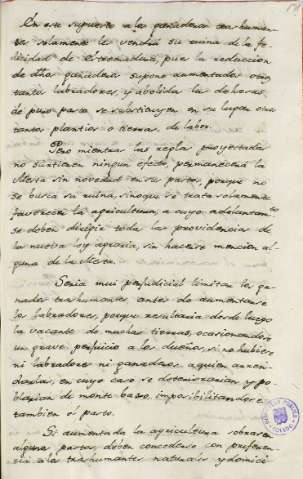 En este supuesto a los ganaderos trashuman-
tes solamente les vendrá su ruina de la fe-
licidad de Estremadura, pues la reduccion
de dhos ganaderos supone aumentados otros
tantos labradores, y abolidas las dehesas
de puro pasto se substituyen en su lugar otros
tantos plantios o tierras de labor.
Pero mientras las reglas proyectadas
no surtiesen ningun efecto, permanecerá la
Mesta sin novedad en ser partes, porque no
se busca su ruina, sino que se trata solamente
favorecer la agricultura, a cuyo adelantamto
se deben dirigir todas las providencias de
la nuestra ley agraria, sin hacerse mencion al-
guna de la Mesta.
Sería muy perjudicial limitar los ga-
nados trashumantes antes de aumentarse
los labradores, porque resultaría desde luego
la vacante de muchas tierras, ocasionandose
un grave perjuicio a los dueños, si no hubiese
ni labradores ni ganaderos a quien arren-
darlas, en cuyo caso se deteriorarian y po-
blarian de monte baxo, imposibilitandose
tambien el pasto.
Si aumentada la agricultura sobrasen
algunos pastos, deben concederse con preferen-
cia a los trashumantes naturales y domici-